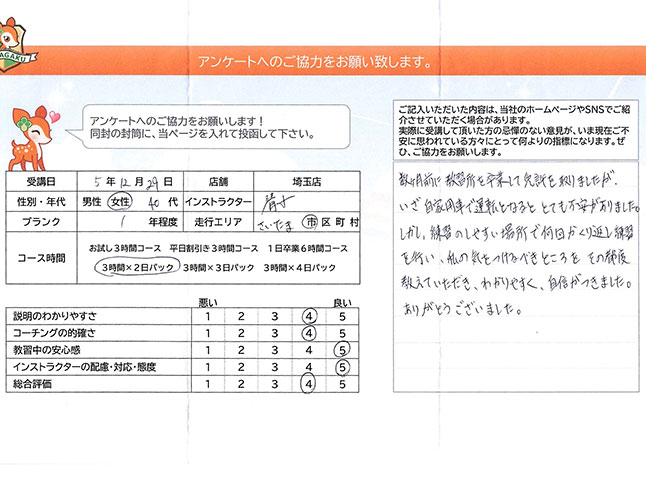 AGAKU
アンケートへのご協力をお願い致します。
アンケートへのご協力をお願いします！
同封の封筒に、当ページを入れて投函して下さい。
受講日 5年12月29日 店舗 埼玉店
性別・年代 男性 女性 40代 インストラクター
ブランク 1 年程度 走行エリア さいたま 市区町村
コース時間
お試し3時間コース 平日割引き3時間コース 1日卒業6時間コース
3時間×2日パック 3時間×3日パック 3時間×4日パック
悪い 良い
説明のわかりやすさ 1 2 3 4 5
コーチングの的確さ 1 2 3 4 5
教習中の安心感 1 2 3 4 5
インストラクターの配慮・対応・態度 1 2 3 4 5
総合評価 1 2 3 4 5
ご記入いただいた内容は、当社のホームページやSNSでご紹
介させていただく場合があります。
実際に受講して頂いた方の忌憚のない意見が、いま現在ご不
安に思われている方々にとって何よりの指標になります。ぜ
ひ、ご協力をお願いします。
数ヶ月前に教習所を卒業して免許を取りましたが、
いざ自家用車で運転となるととても不安がありました。
しかし、練習のしやすい場所で何回かくり返し練習
を行い、私の気をつけなべきところをその都度
教えていただき、わかりやすく、自信がつきました。
ありがとうございました。